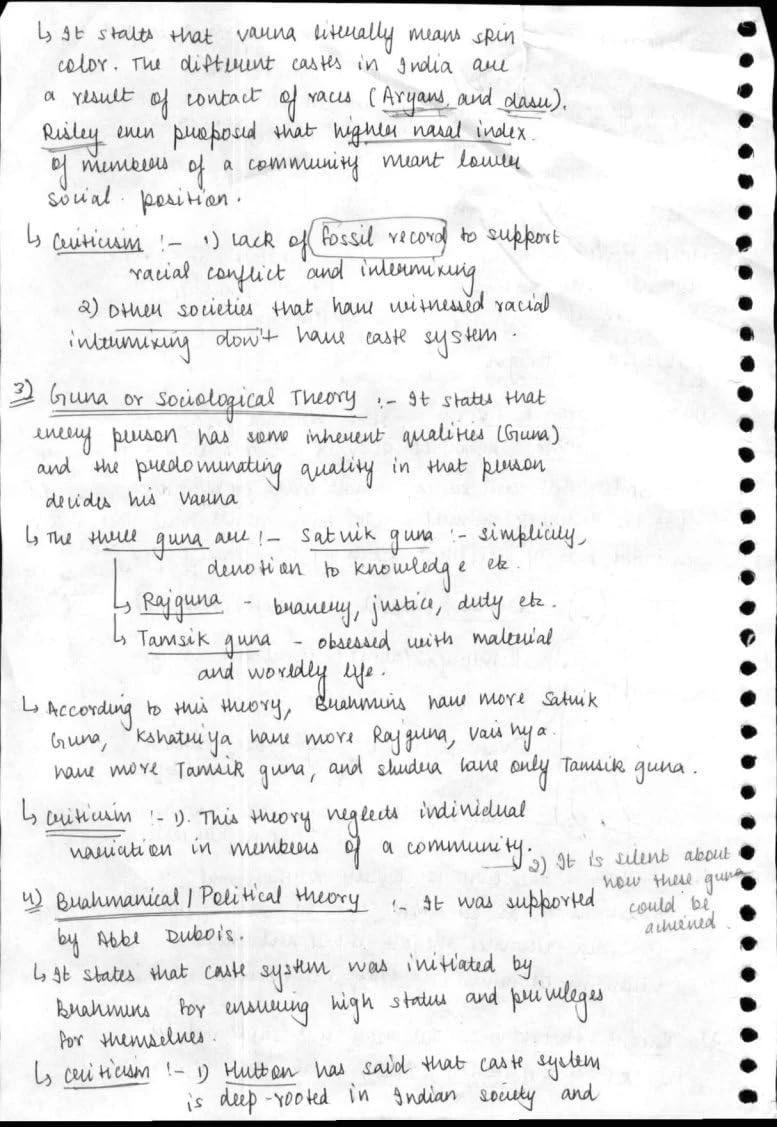 ↳ It states that varna literally means skin
color. The different castes in India are
a result of contact of races (Aryans and dasu).
Risley even proposed that higher nasal index
of members of a community meant lower
social position.
↳ Criticism :- 1) Lack of fossil record to support
racial conflict and intermixing
2) Other societies that have witnessed racial
intermixing don't have caste system.
3) Guna or Sociological Theory :- It states that
every person has some inherent qualities (Guna)
and the predominating quality in that person
decides his varna
↳ The three guna are :- Satvik guna :- simplicity,
devotion to knowledge etc.
↳ Rajguna - bravery, justice, duty etc.
↳ Tamsik guna - obsessed with material
and worldly life.
↳ According to this theory, Brahmins have more Satvik
Guna, Kshatriya have more Rajguna, vaishya
have more Tamsik guna, and shudra have only Tamsik guna.
↳ Criticism :- 1). This theory neglects individual
variation in members of a community.
→ 2) It is silent about
how these guna
could be
achieved.
4) Brahmanical / Political theory :- It was supported
by Abbe Dubois.
↳ It states that caste system was initiated by
Brahmins for ensuring high status and privileges
for themselves.
↳ Criticism :- 1) Hutton has said that caste system
is deep-rooted in Indian society and